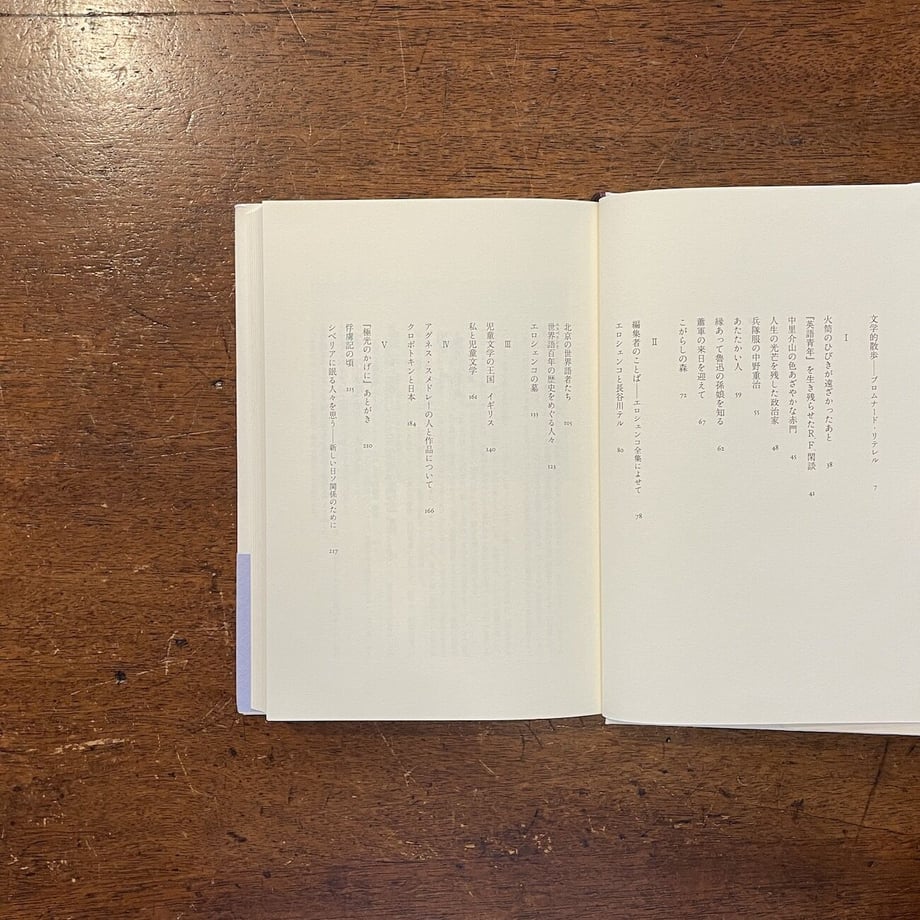 文学的散歩――プロムナード・リテレル 7
I
火筒のひびきが遠ざかったあと 38
『英語青年』を生き残らせたR.F.閑談 41
中里介山の色あざやかな赤門 45
人生の光芒を残した政治家 48
兵隊服の中野重治 55
あたたかい人 59
縁あって魯迅の孫娘を知る 62
蕭軍の来日を迎えて 67
こがらしの森 72
II
編集者のことば――エロシェンコ全集によせて 78
エロシェンコと長谷川テル 80
北京の世界語者たち 105
世界語百年の歴史をめぐる人々 123
エロシェンコの墓 133
III
児童文学の王国 イギリス 140
私と児童文学 161
IV
アグネス・スメドレーの人と作品について 166
クロポトキンと日本 184
V
『極光のかげに』あとがき 210
俘虜記の頃 215
シベリアに眠る人々を思う――新しい日ソ関係のために 217